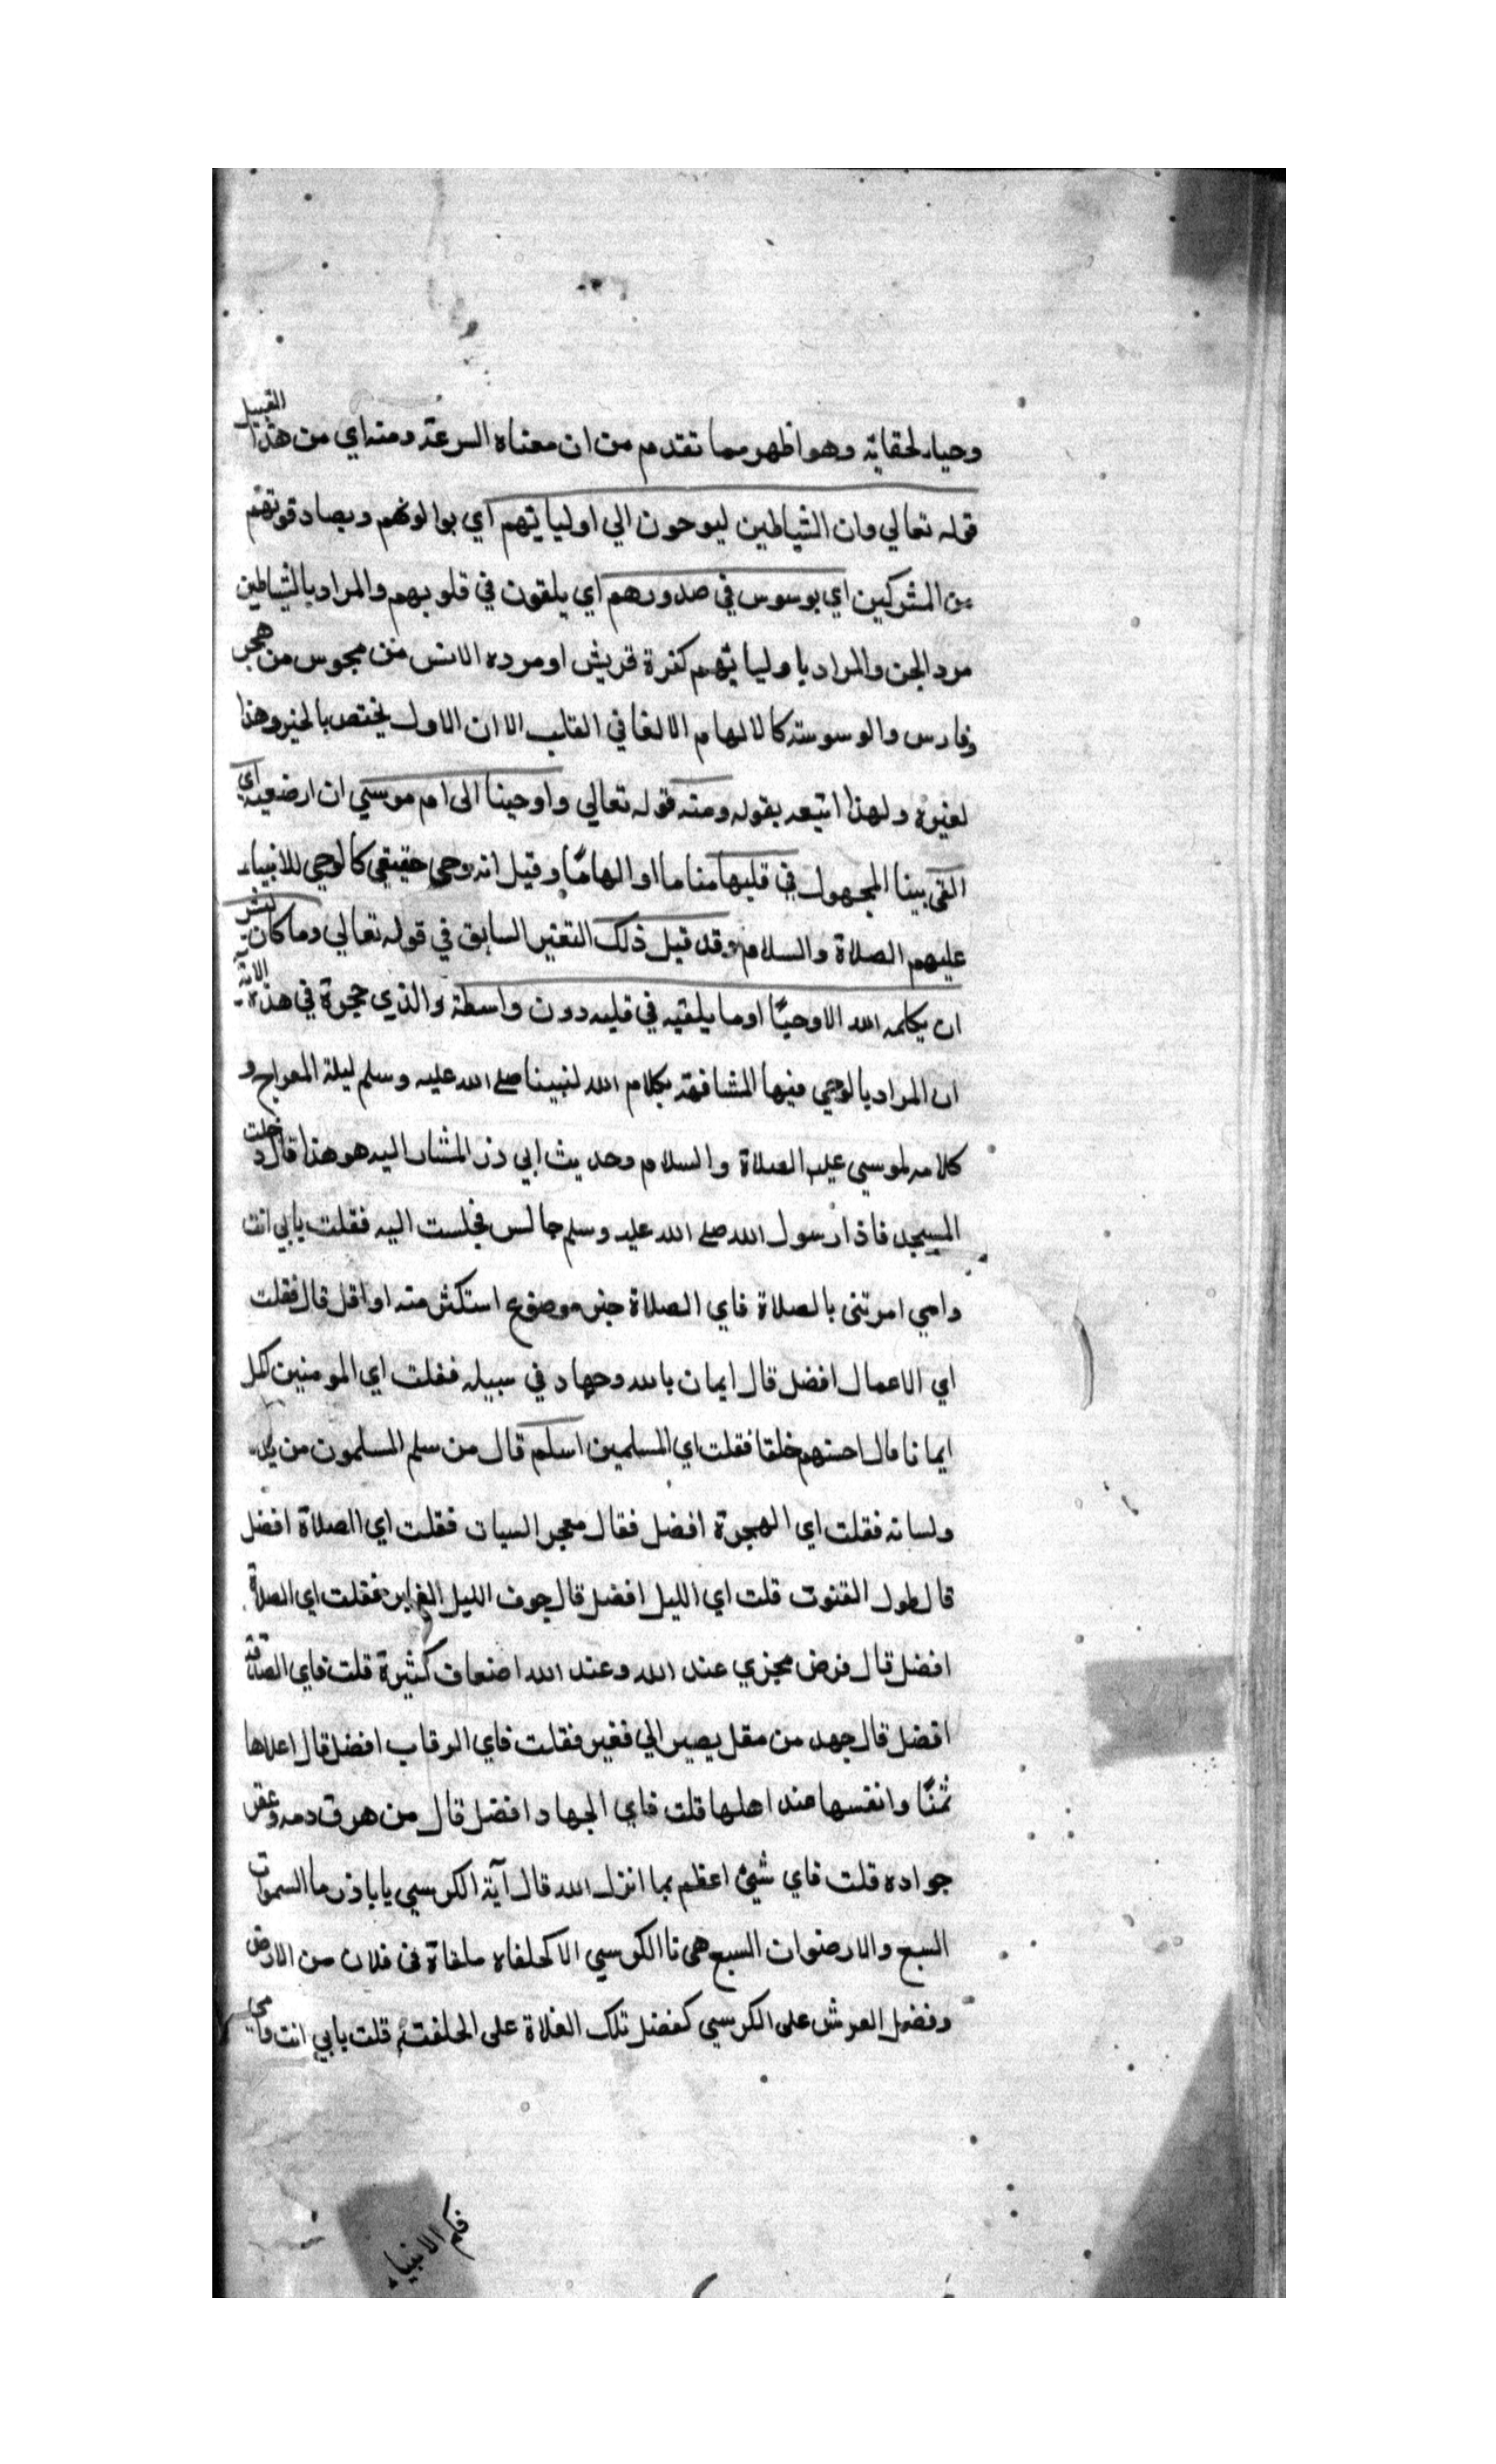 وحياء لحقاية وهو اظهر مما تقدم من ان معناه السرعة ومنه اي من هذا القبيل
قوله تعالي وان الشياطين ليوحون الي اوليايهم اي يوالونهم ويصادقونهم
من المشركين اي يوسوس في صدورهم اي يلقون في قلوبهم والمراد بالشياطين
مرد الجن والمراد باوليايهم كفرة قريش او مرده الانس من مجوس من هجر
وفارس والوسوسة كالالهام الالغا في القلب الا ان الاول يختص بالخير وهذا
لغيره ولهذا اتبعه بقوله ومنه قوله تعالي واوحينا الى ام موسي ان ارضعيه اي
القى بينا المجهول في قلبها مناما او الهامًا وقيل انه وحى حقيقي كالوحي للانبياء
عليهم الصلاة والسلام وقد قيل ذلك التفير السابق في قوله تعالي وما كان لبشر
ان يكلمه الله الا وحيًا او ما يلقيه في قلبه دون واسطة والذي حجرة في هذه الاية
ان المراد بالوحي فيها المشافهة بكلام الله لنبينا صلى الله عليه وسلم ليلة المعراج و
كلامه لموسي عليه الصلاة والسلام وحديث ابي ذر المشار اليه هو هذا قال دخلت
المسجد فاذا رسول الله صلى الله عليه وسلم جالس فجلست اليه فقلت يابي انت
وامي امرتنى بالصلاة فاي الصلاة خير موضوع استكثر منه او اقل قال فقلت
اي الاعمال افضل قال ايمان بالله وجهاد في سبيله فقلت اي المومنين اكمل
ايمانا قال احسنهم خلقا فقلت اي المسلمين اسلم قال من سلم المسلمون من يده
ولسانه فقلت اي الهجرة افضل فقال من هجر السيات فقلت اي الصلاة افضل
قال طول القنوت قلت اي الليل افضل قال جوف الليل الغابر فقلت اي الصلاة
افضل قال فرض مجزي عند الله وعند الله اضعاف كثيرة قلت فاي الصدقة
افضل قال جهد من مقل يصير الي فقير فقلت فاي الرقاب افضل قال اعلاها
ثمنًا وانفسها عند اهلها قلت فاي الجهاد افضل قال من هرق دمه وعقر
جواده قلت فاي شيئ اعظم بما انزل الله قال آية الكرسي يا باذر ما السموات
السبع والارضوات السبع هى تا الكرسي الا كحلفاه ملقاة في فلان من الارض
وفضل العرش على الكرسي كفضل تلك الفلاة على الحلفة قلت بابي انت وامي
فكم الانبياء